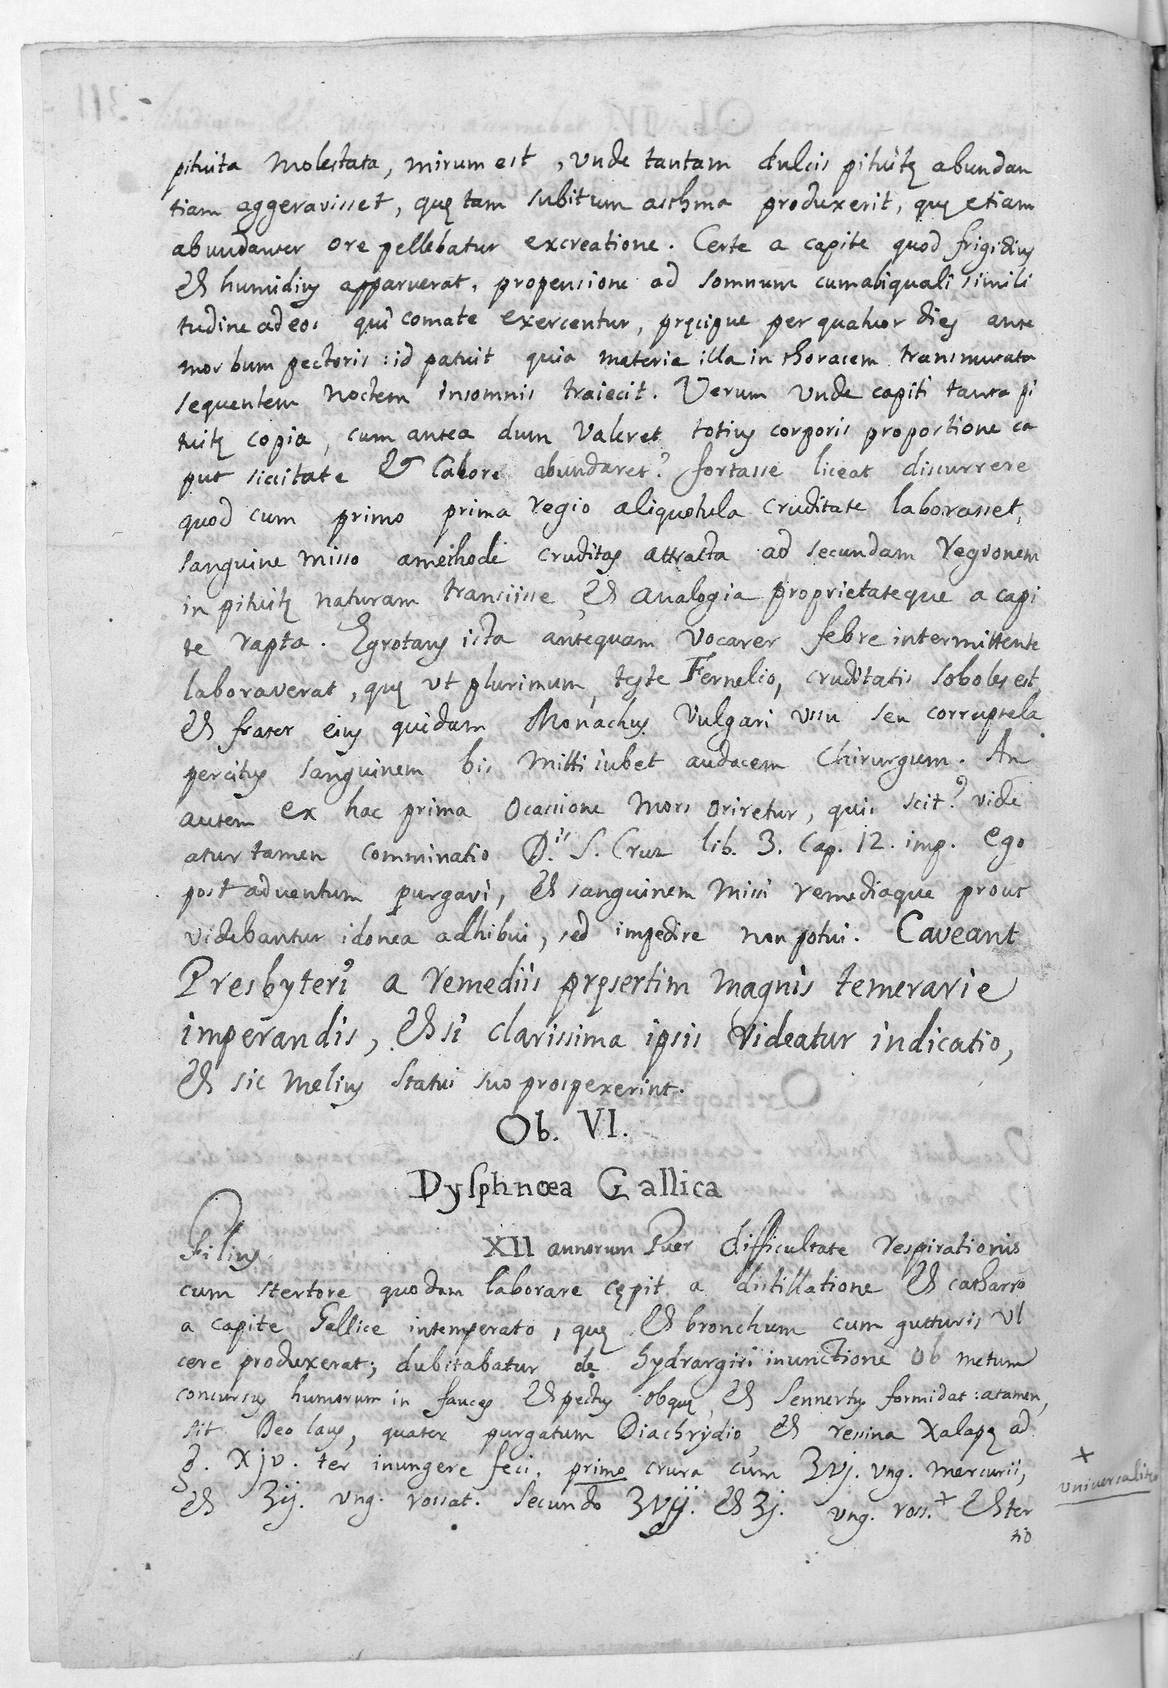 pituita molestata, mirum est, unde tantam dulcis pituitę abundan
tiam aggeravisset, quę tam subitum asthma produxerit, quę etiam
abundanter ore pellebatur excreatione. Certe a capite quod frigidius
et humidius apparuerat, propensione ad somnum cum aliquali simili
tudine ad eos qui comate exercentur, pręcipue per quatuor dies ante
morbum pectoris: id patuit quia materia illa in thoracem transmutata
sequentem noctem insomnis traiecit. Verum unde capiti tanta pi
tuitę copia, cum antea dum valeret totius corporis proportione ca
put siccitate et calore abundaret? fortasse liceat discurrere
quod cum primo prima regio aliquotula cruditate laborasset,
sanguine misso amethode cruditas attracta ad secundam regionem
in pituitę naturam transiisse, et analogia proprietateque a capi
te rapta. Ęgrotans ista antequam vocarer febre intermittente
laboraverat, quę ut plurimum, teste Fernelio, cruditatis soboles est
et frater eius quidam Monachus vulgari usu seu corruptela
percitus sanguinem bis mitti iubet audacem Chirurgum. An
autem ex hac prima ocassione mors oriretur, quis scit? vide
atur tamen comminatio D.is S. Cruz lib. 3. cap. 12. imp. Ego
post adventum purgavi, et sanguinem missi remediaque prout
videbantur idonea adhibui, sed impedire non potui. Caveant
Presbyteri a remediis pręsertim magnis temerarie
imperandis, et si clarissima ipsis videatur indicatio,
et sic melius statui suo prospexerint.
Ob. VI.
Dysphnœa Gallica
Filius XII annorum Puer difficultate respirationis
cum stertore quodam laborare cępit a distillatione et catharro
a capite Gallice intemperato, quę et bronchum cum gutturis ul
cere produxerat; dubitabatur de hydrargiri inunctione ob metum
concursus humorum in fauces et pectus obque et Sennertus formidat: atamen,
sit Deo laus, quater purgatum Diachrydio, et resina Xalapę ad
g. xjv. ter inungere feci. primo crura cum ʒvj. ung. mercurii,
et ʒij. ung. rossat. secundo ʒvij. et ʒj. ung. ross.+ et ter
tio
+
universalit